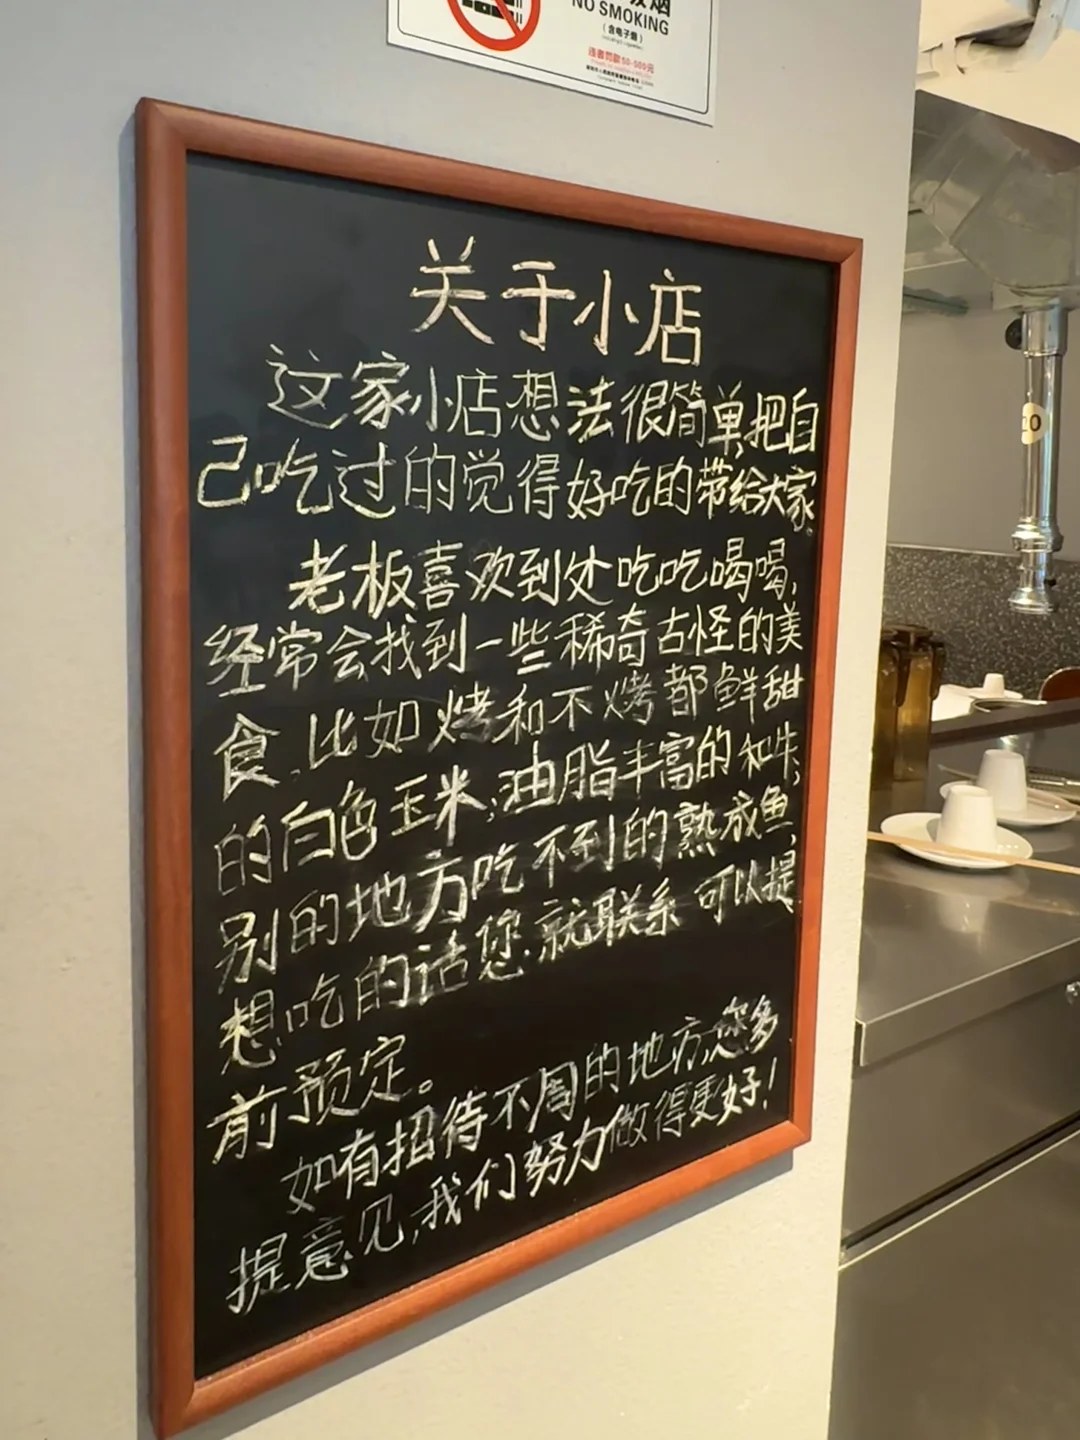 NO SMOKING
(含电子烟)
违者罚款50-500元
关于小店
这家小店想法很简单,把自
己吃过的觉得好吃的带给大家。
老板喜欢到处吃吃喝喝,
经常会找到一些稀奇古怪的美
食,比如烤和不烤都鲜甜
的白色玉米,油脂丰富的和牛,
别的地方吃不到的熟成鱼,
想吃的话您就联系 可以提
前预定。
如有招待不周的地方,您多
提意见,我们努力做得更好!